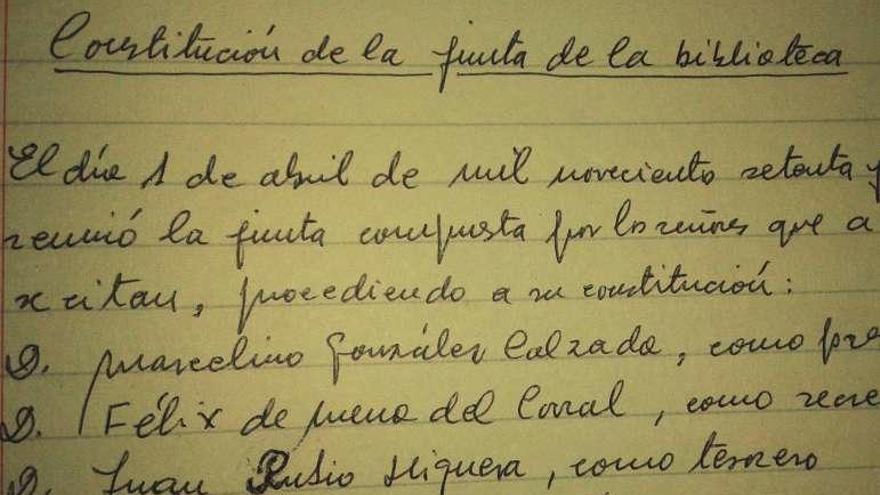 Constitución de la junta de la biblioteca
El día 1 de abril de mil noveciento setenta y
reunió la junta compuesta por los señores que a
se citan, procediendo a su constitución:
D. Marcelino González Calzada, como pre
D. Félix de Mena del Corral, como secre
D. Juan Rubio Higuera, como tesorero